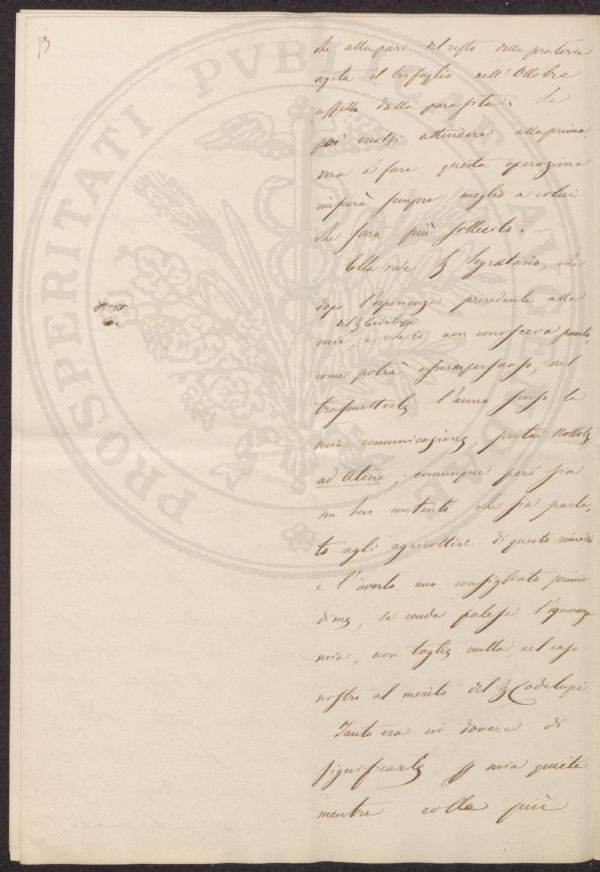 13
che alla pari del resto della prateria
vegeta il trifoglio nell'Ottobre
affetto dalla parassita. Se
poi vuolsi attendere alla prima-
vera a fare questa operazione
riuscirà sempre meglio a colui
che sarà più sollecito.
Ella vede Sigr Segretario, che
dopo l'esperienze precedenti alle
del Sigr Cadelupi
mie, e che io non conosceva punto,
come potrà esser persuaso, nel
trasmetterle l'anno scorso la
mia comunicazione, portai Nottole
ad Atene, comunque però sia
son ben contento che sia parla-
to agli agricoltori di questo rimedio
e l'averlo uno consigliato prima
di me, se rende palese l'ignoranza
mia, non toglie nulla, nel caso
nostro al merito del Sigr Cadelupi.
Tanto era in dovere di
significarle per mia quiete
mentre colla più
PROSPERITATI PUBLICAE AUGENDAE